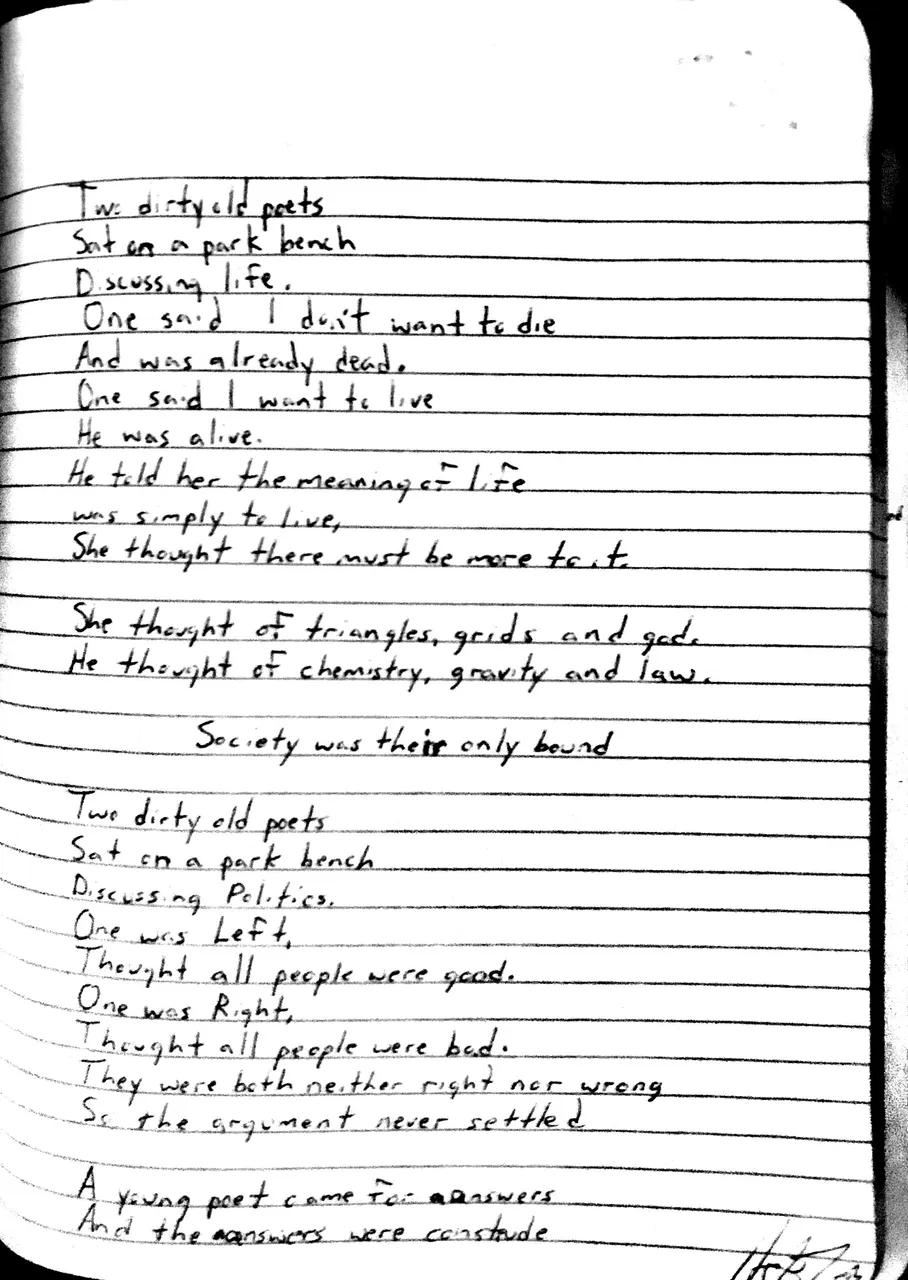 Two dirty old poets
Sat on a park bench
Discussing life.
One said I don't want to die
And was already dead.
One said I want to live
He was alive.
He told her the meaning of life
was simply to live,
She thought there must be more to it.
She thought of triangles, grids and gods.
He thought of chemistry, gravity and law.
Society was their only bound
Two dirty old poets
Sat on a park bench
Discussing Politics.
One was Left,
Thought all people were good.
One was Right,
Thought all people were bad.
They were both neither right nor wrong
So the argument never settled
A young poet came for answers
And the answers were constude